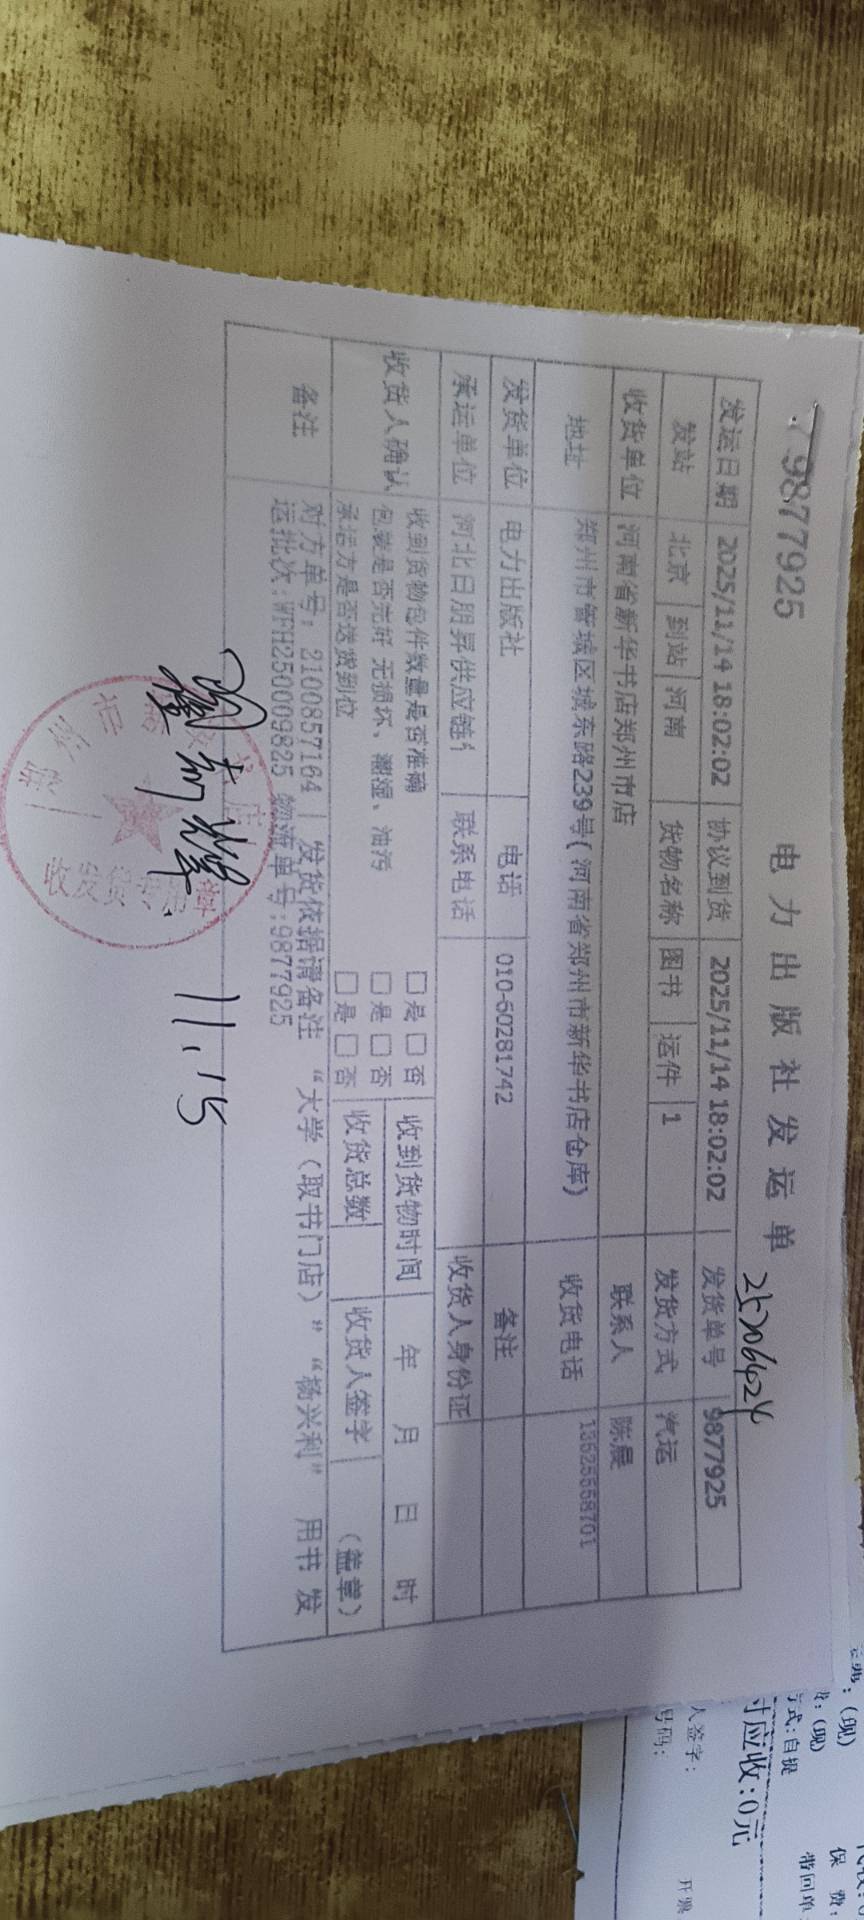 79877925
电力出版社发运单
25206424
发运日期 2025/11/14 18:02:02 协议到货 2025/11/14 18:02:02 发货单号 9877925
发站 北京 到站 河南 货物名称 图书 运件 1 发货方式 汽运
收货单位 河南省新华书店郑州市店 联系人 陈晨
地址 郑州市管城区城东路239号(河南省郑州市新华书店仓库) 收货电话
发货单位 电力出版社 电话 010-60281742 备注
承运单位 河北日朋昇供应链 联系电话 收货人身份证
收货人确认 收到货物包件数量是否准确 □是□否 收到货物时间 年 月 日 时
包装是否完好 无损坏、潮湿、油污 □是□否
承运方是否送货到位 □是□否 收货总数 收货人签字 (盖章)
备注 对方单号：2100857164 | 发货依据请备注 “大学（取书门店）”“杨兴利” 用书 发
运批次:WFH250009825 物流单号:9877925
11.15
郑州市 店
收发货专用章
(现)
(现)
式:自提
时应收:0元
人签字:
号码:
保 费:
带回单:
开票